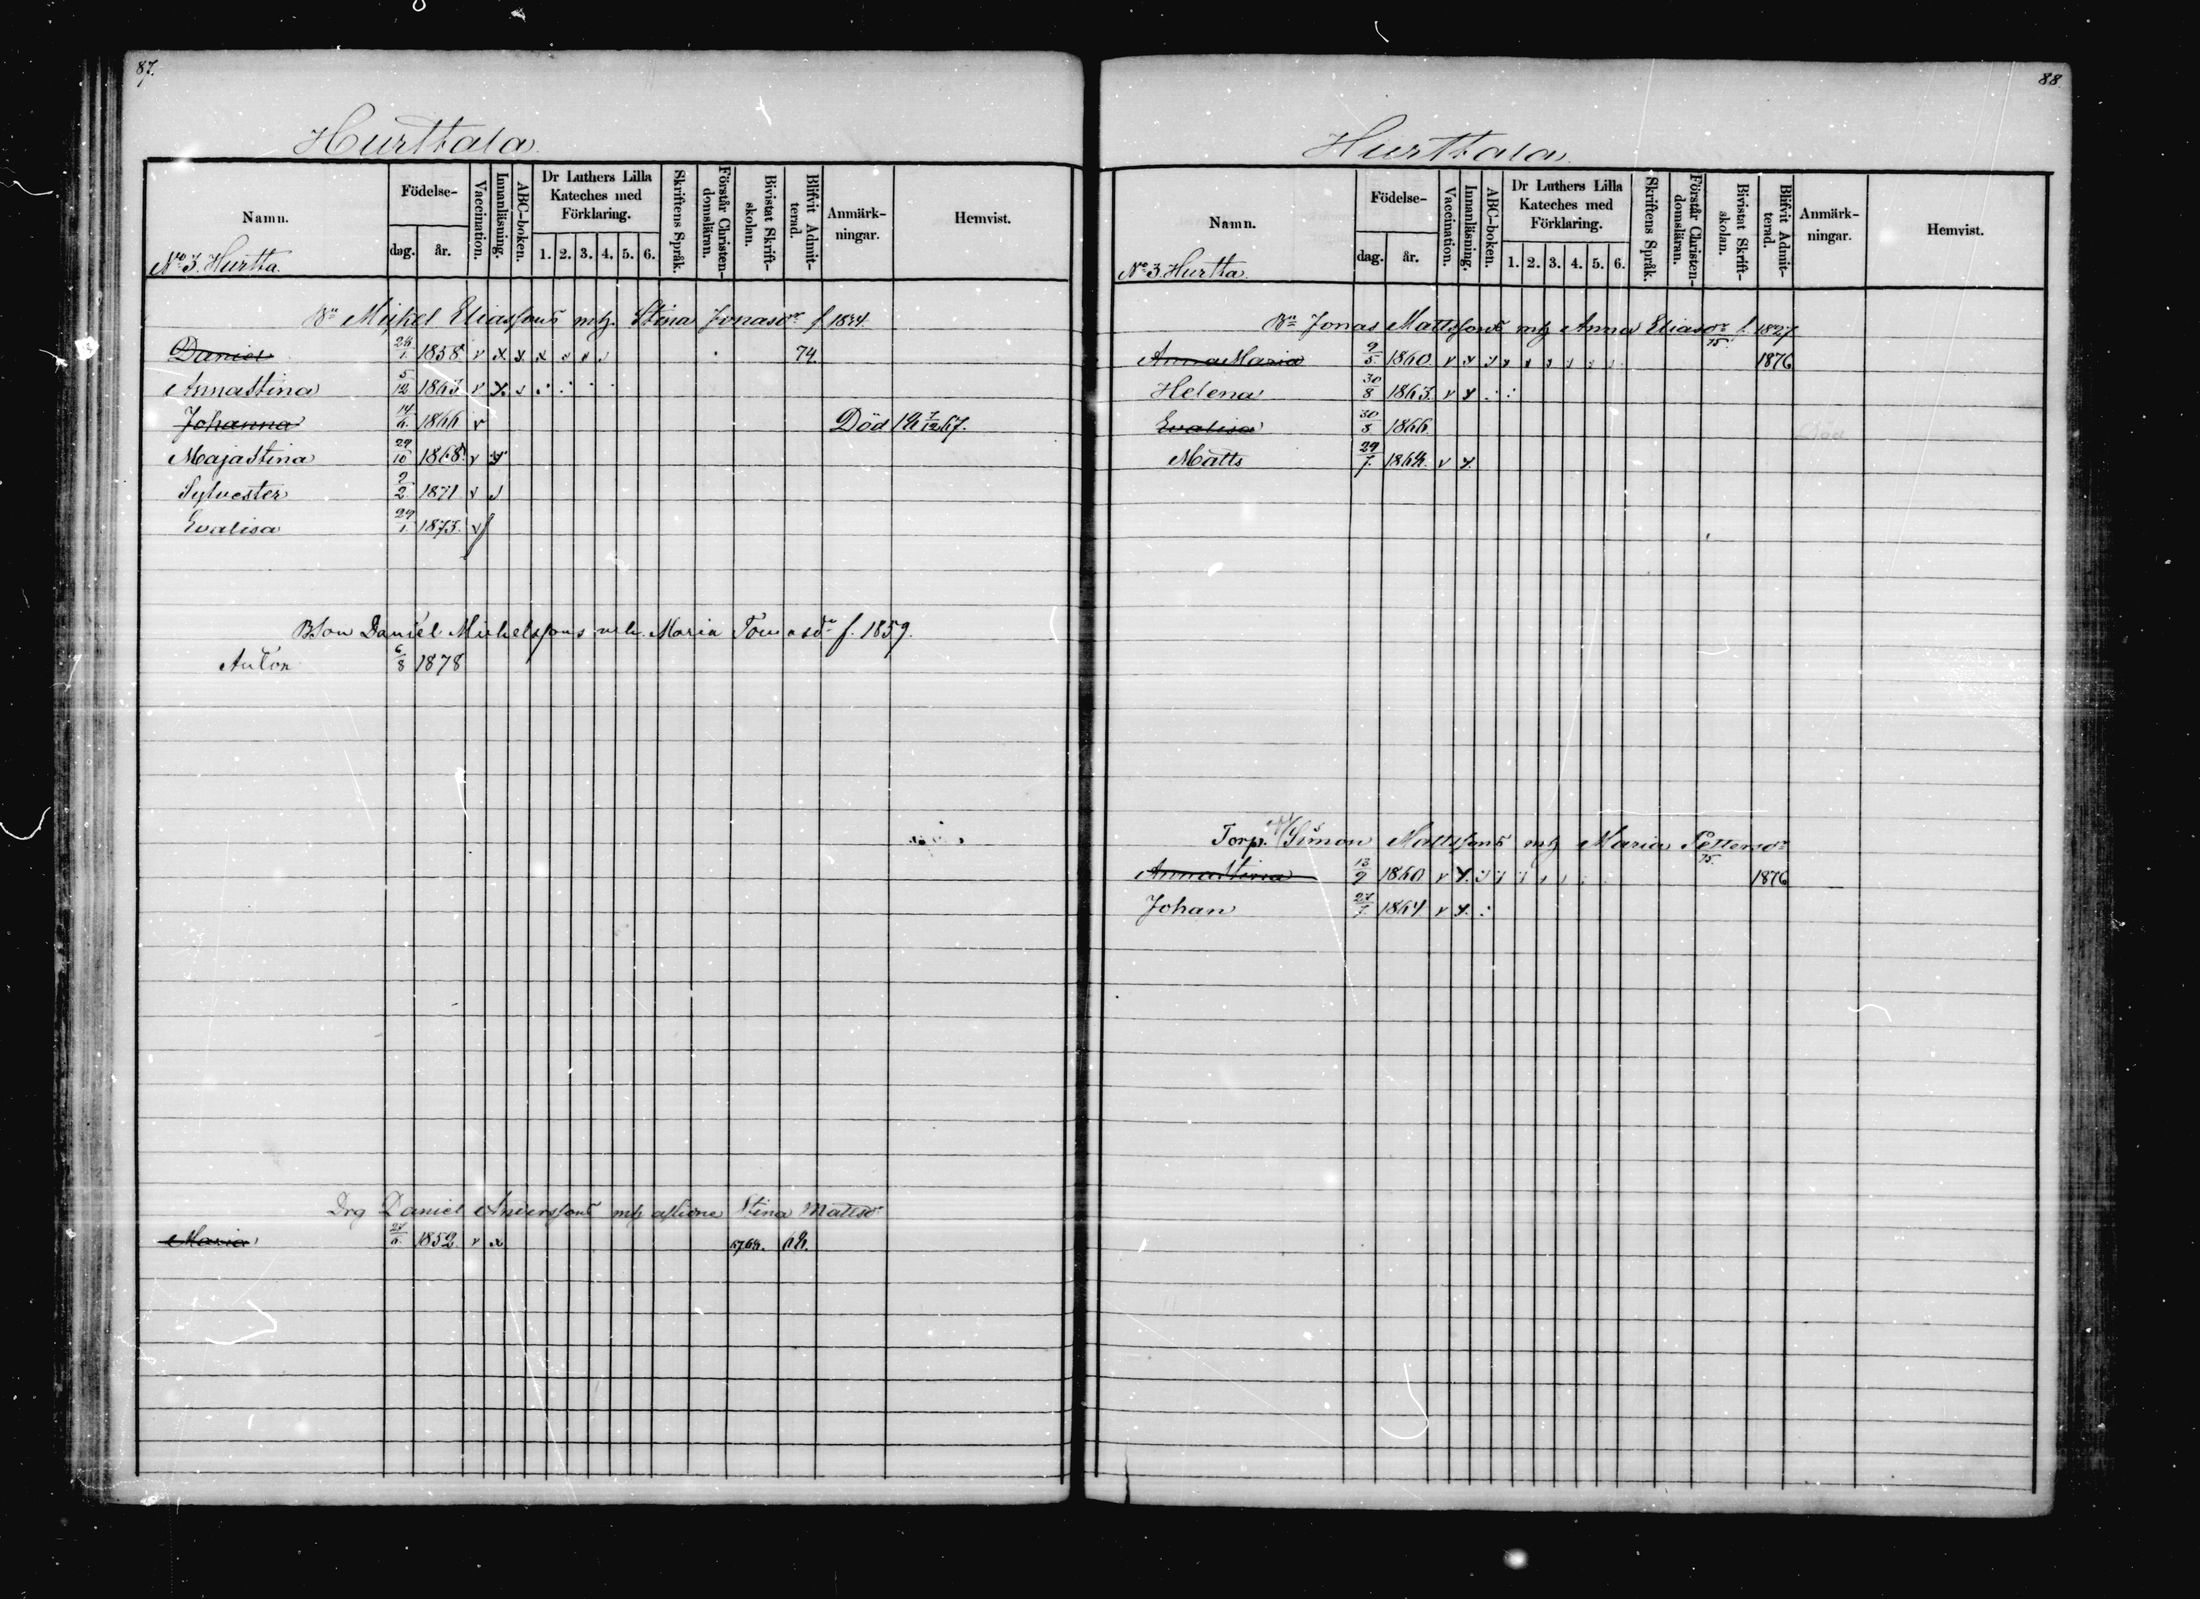 87.
Hurttala
Namn. Födelse- dag. år. Vaccination. Innanläsning. ABC-boken. Dr Luthers Lilla Kateches med Förklaring. 1. 2. 3. 4. 5. 6. Skriftens Språk. Förstår Christen-domsläran. Bivistat Skrift-skolan. Blifvit Admit-terad. Anmärk-ningar. Hemvist.
No 3. Hurtta.
Bn Mickel Eliassons mh. Stina Jonasdr f 1834.
Daniel 1. 1858 v x x x 74.
Annastina 5/12 1863 v x
Johanna 14/6 1866 v Död 7/12 67.
Majastina 29/10 1868 v x
Sylvester 9/2 1871 v
Evalisa 29/1. 1873. v
BSon Daniel Michelssons mh. Maria Tomasdr f. 1859.
Anton 6/8 1878
Drg Daniel Anderssons mh Stina Mattsdr
Maria 1852 v x
88.
Hurttala
Namn. Födelse- dag. år. Vaccination. Innanläsning. ABC-boken. Dr Luthers Lilla Kateches med Förklaring. 1. 2. 3. 4. 5. 6. Skriftens Språk. Förstår Christen-domsläran. Bivistat Skrift-skolan. Blifvit Admit-terad. Anmärk-ningar. Hemvist.
No 3. Hurtta.
Bn Jonas Mattssons mh Anna Eliasdr f. 1827
Anna Maria 9/5. 1860. v x 75. 1876
Helena 30/8 1863. v x
Evalisa 30/8 1866.
Matts 29/7. v x
Torp. Simon Mattssons mh Maria Pettersdr
Annastina 13/9 1860 v x 75. 1876
Johan 1864 v x